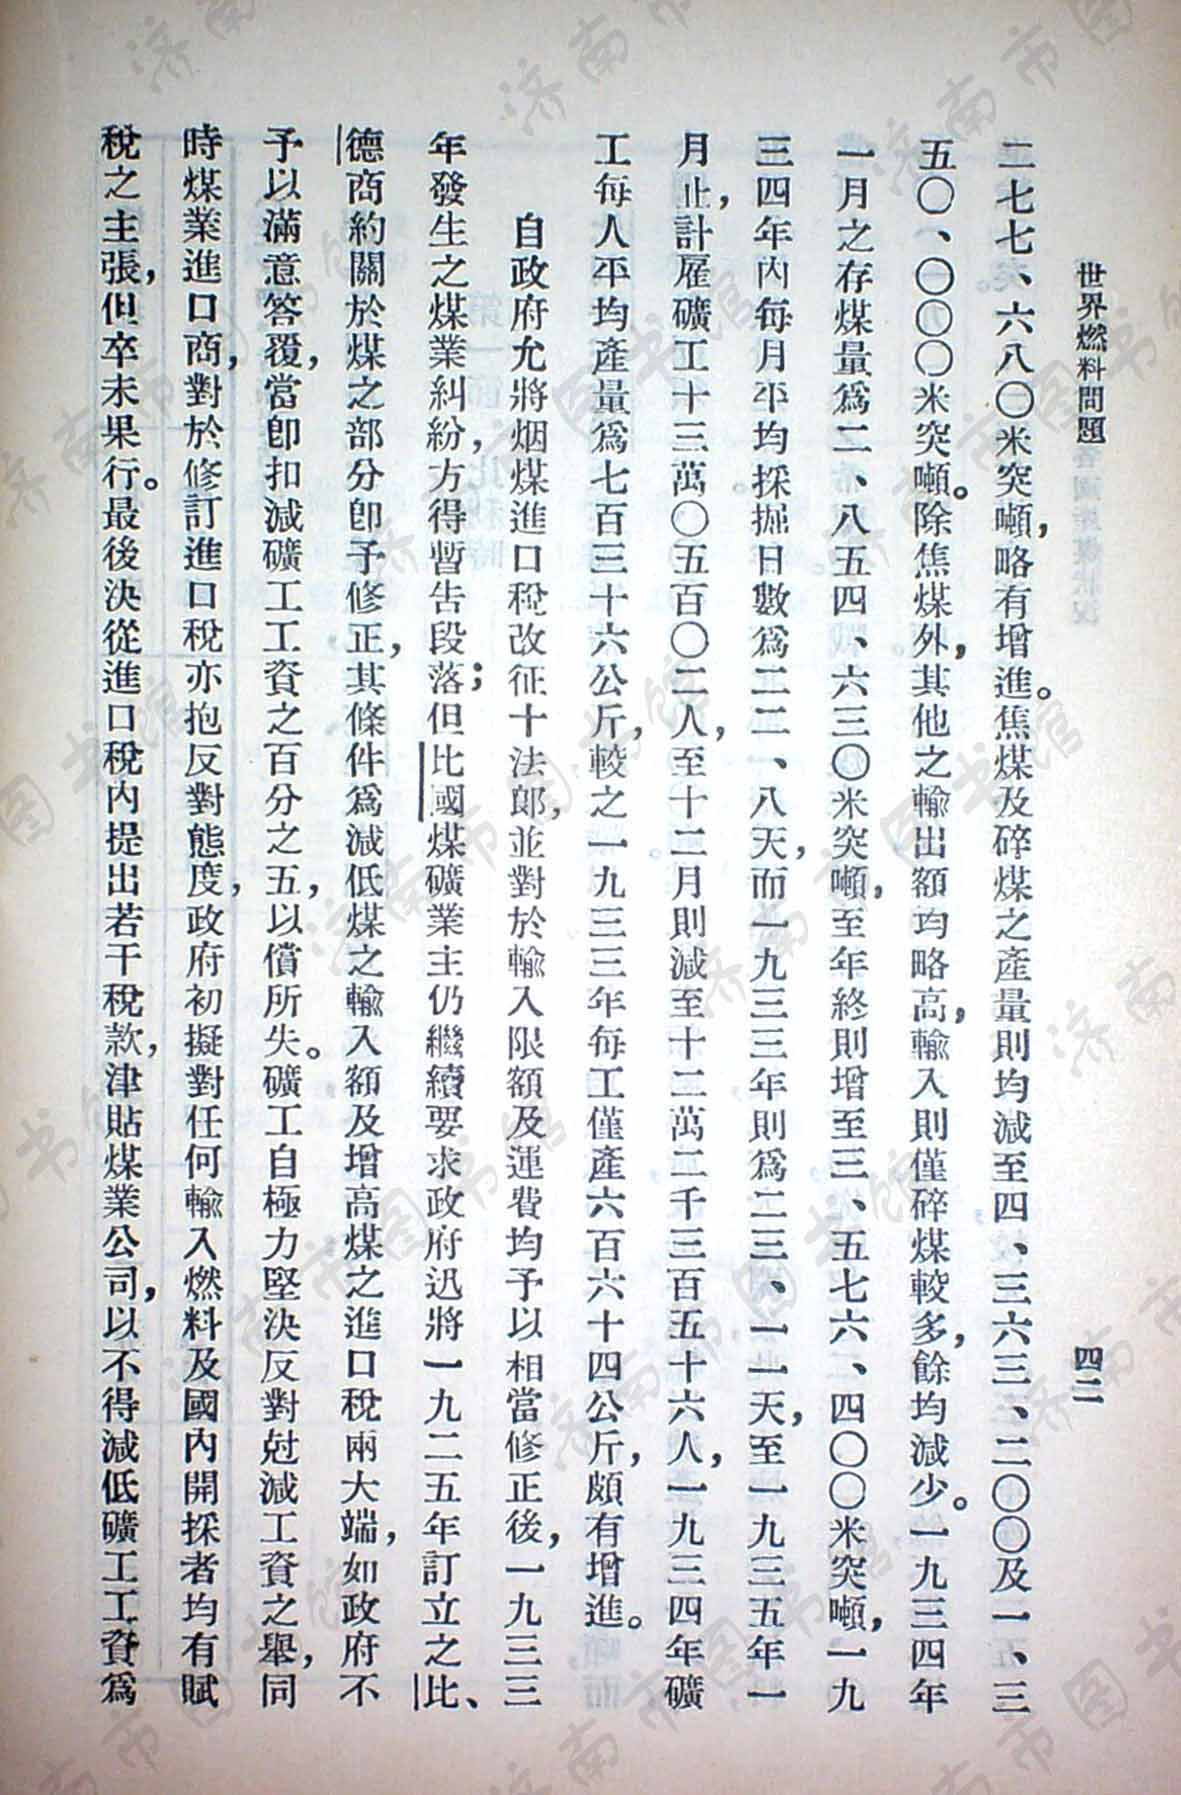 世界燃料問題
四二
二七七、六八〇米突噸，略有增進。焦煤及碎煤之產量則均減至四、三六三、二〇〇及一、三
五〇、〇〇〇米突噸。除焦煤外，其他之輸出額均略高，輸入則僅碎煤較多，餘均減少。一九三四年
一月之存煤量爲二、八五四、六三〇米突噸，至年終則增至三、五七六、四〇〇米突噸，一九
三四年內每月平均採掘日數爲二二、八天，而一九三三年則爲二三、一一天，至一九三五年一
月止，計雇礦工十三萬〇五百〇二人，至十二月則減至十二萬二千三百五十六人，一九三四年礦
工每人平均產量爲七百三十六公斤，較之一九三三年每工僅產六百六十四公斤，頗有增進。
自政府允將烟煤進口稅改征十法郎，並對於輸入限額及運費均予以相當修正後，一九三三
年發生之煤業糾紛，方得暫告段落；但比國煤礦業主仍繼續要求政府迅將一九二五年訂立之比、
德商約關於煤之部分卽予修正，其條件爲減低煤之輸入額及增高煤之進口稅兩大端，如政府不
予以滿意答覆，當卽扣減礦工工資之百分之五，以償所失。礦工自極力堅決反對尅減工資之舉，同
時煤業進口商，對於修訂進口稅亦抱反對態度，政府初擬對任何輸入燃料及國內開採者均有賦
稅之主張，但卒未果行。最後決從進口稅內提出若干稅款，津貼煤業公司，以不得減低礦工工資爲